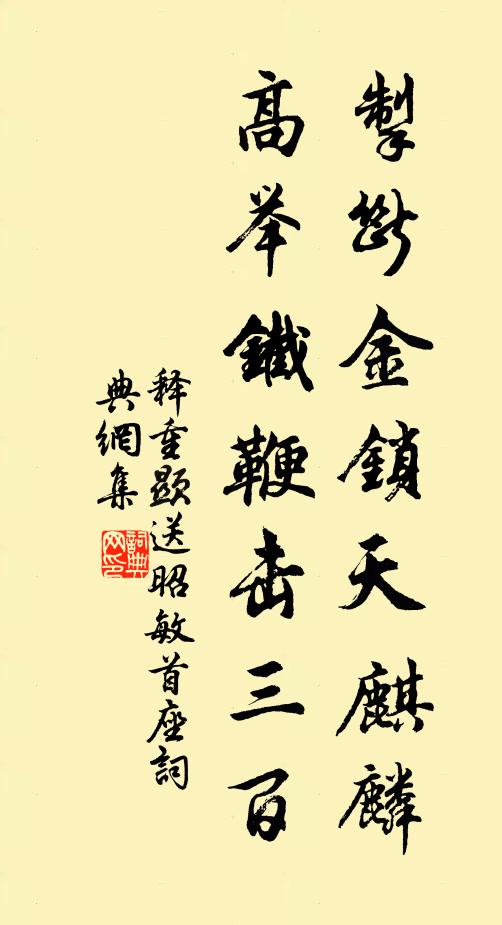 掣断金鎖天麒麟
高举鐵鞭击三百
释重顯送昭敏首座詞
典網集
詞典网印